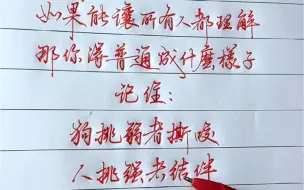 如果能讓所有人都理解
那你得普通成什麼樣子
记住：
狗挑弱者撕咬
人挑强者结伴